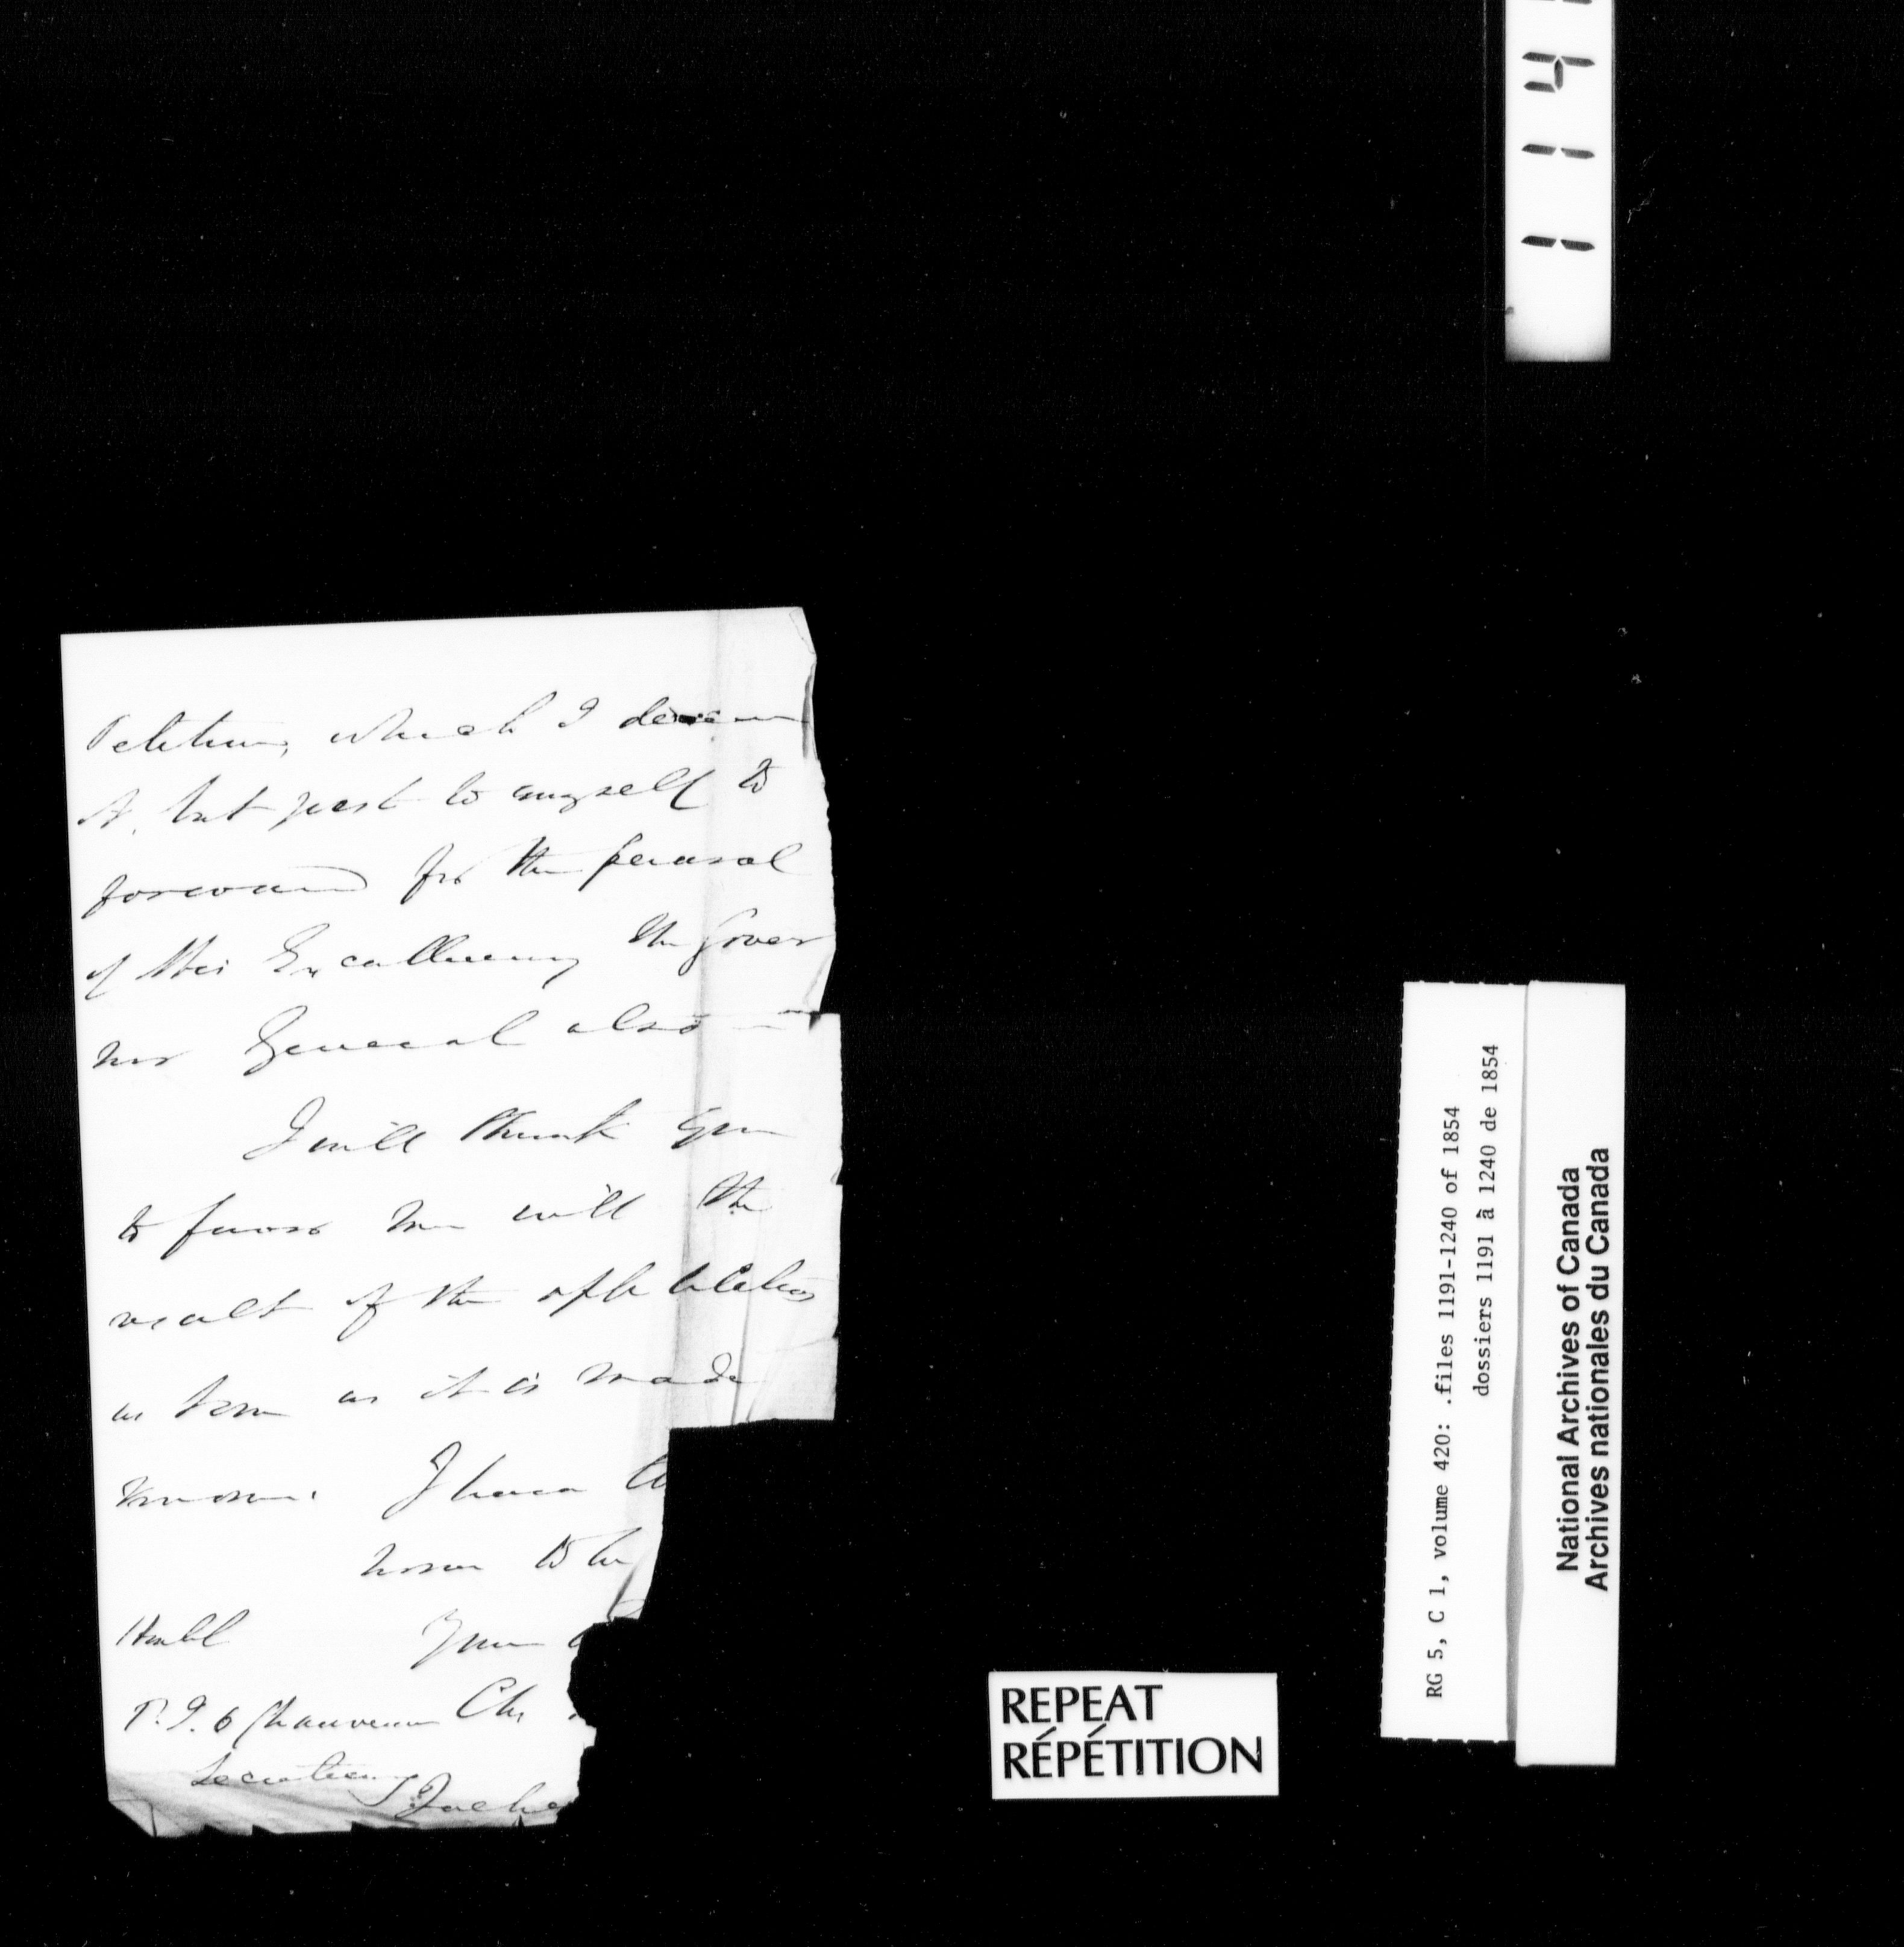 Petition, which I deem
it but just to myself to
forward for the perusal
of His Excellency the Gover
nor General also
I will thank you
to favor me with the
result of the application
as soon as it is made
known. I have th
honor to be
Honbl Your
P. J. O Chauveau
Secretary
REPEAT
RÉPÉTITION
RG 5, C 1, volume 420: .files 1191-1240 of 1854
dossiers 1191 à 1240 de 1854
National Archives of Canada
Archives nationales du Canada
4 1 1